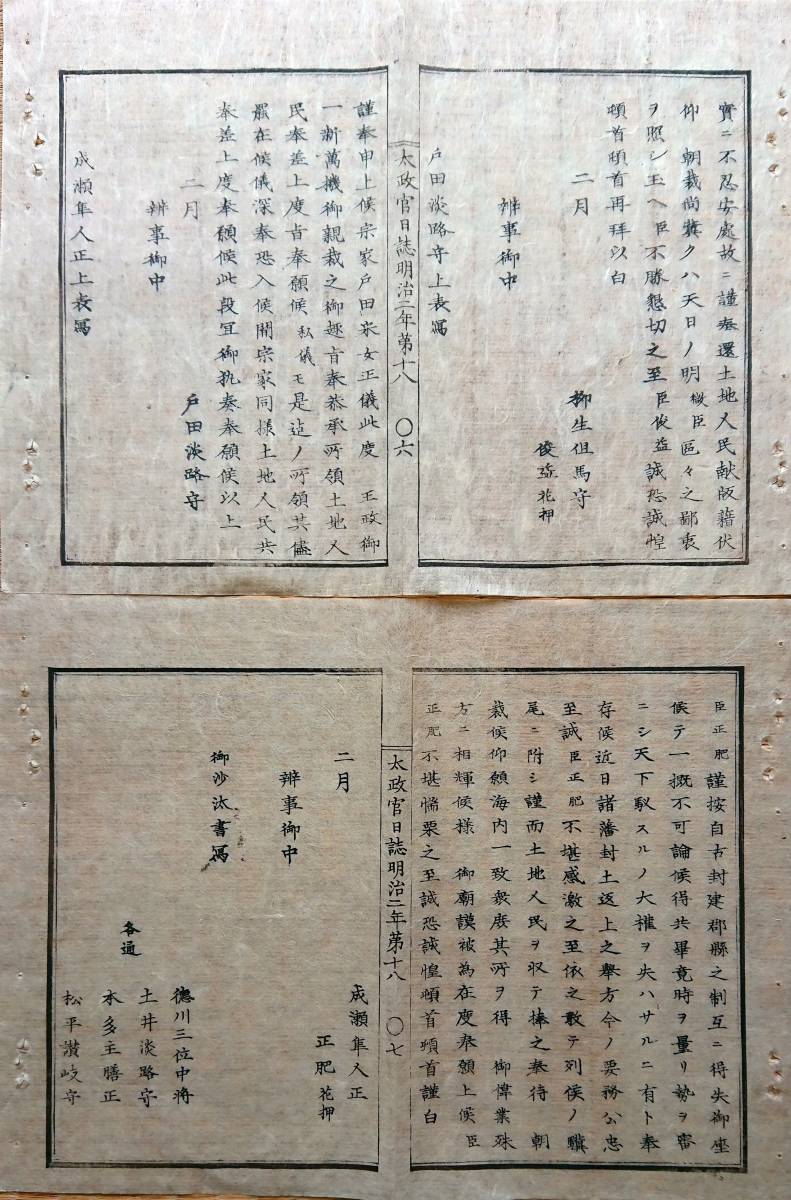 實ニ不忍安處故ニ謹奉還土地人民献版籍伏
仰　朝裁尚冀クハ天日ノ明微臣區々之鄙衷
ヲ照シ玉ヘ臣不勝懇切之至臣俊益誠恐誠惶
頓首頓首再拜以白
二月
柳生但馬守
俊益花押
辨事御中
戸田淡路守上表寫
太政官日誌明治二年第十八　〇六
謹奉申上候宗家戸田采女正儀此度　王政御
一新萬機御親裁之御趣旨奉恭承所領土地人
民奉差上度旨奉願候私儀モ是迠ノ所領其儘
罷在候儀深奉恐入候間宗家同様土地人民共
奉差上度奉願候此段冝御執奏奉願候以上
二月
戸田淡路守
辨事御中
成瀬隼人正上表寫
臣正肥謹按自古封建郡縣之制互ニ得失御座
候テ一概不可論候得共畢竟時ヲ量リ勢ヲ審
ニシ天下馭スルノ大權ヲ失ハサルニ有ト奉
存候近日諸藩封土返上之舉方今ノ要務公忠
至誠臣正肥不堪感激之至依之敢テ列侯ノ驥
尾ニ附シ謹而土地人民ヲ収テ捧之奉待　朝
裁候仰願海内一致衆庶其所ヲ得　御偉業殊
方ニ相輝候様　御廟謨被為在度奉願上候臣
正肥不堪惴栗之至誠恐誠惶頓首頓首謹白
太政官日誌明治二年第十八　〇七
二月
成瀬隼人正
正肥花押
辨事御中
御沙汰書寫
徳川三位中将
土井淡路守
各通
本多主膳正
松平讃岐守